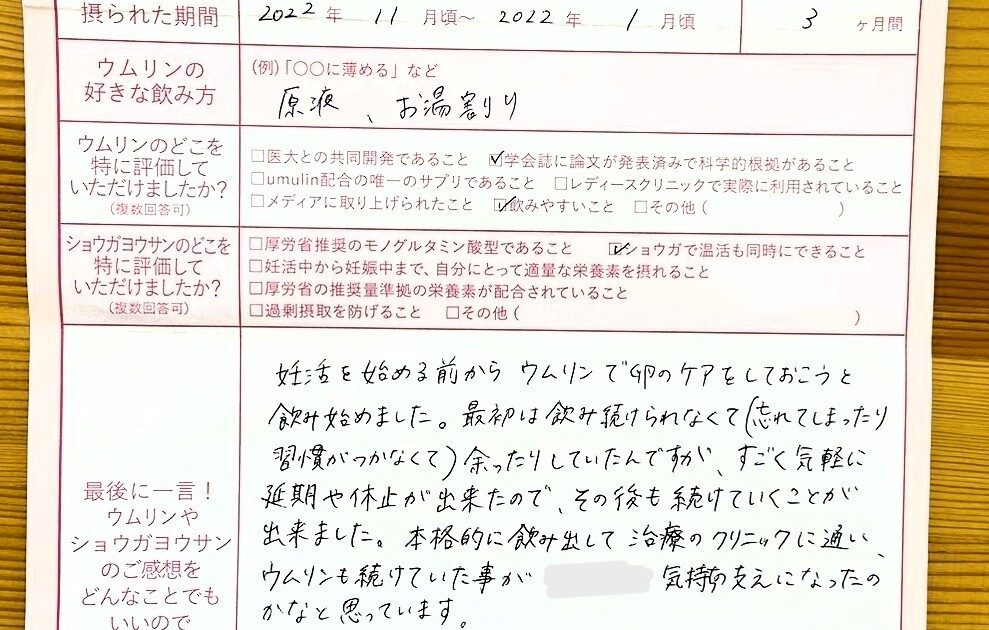 摂られた期間 2022年 11月頃～2022年 1月頃 3ヶ月間
ウムリンの
好きな飲み方
(例)「〇〇に薄める」など
原液、お湯割り
ウムリンのどこを
特に評価して
いただけましたか?
(複数回答可)
□医大との共同開発であること ☑学会誌に論文が発表済みで科学的根拠があること
□umulin配合の唯一のサプリであること □レディースクリニックで実際に利用されていること
□メディアに取り上げられたこと ☑飲みやすいこと □その他( )
ショウガヨウサンのどこを
特に評価して
いただけましたか?
(複数回答可)
□厚労省推奨のモノグルタミン酸型であること ☑ショウガで温活も同時にできること
□妊活中から妊娠中まで、自分にとって適量な栄養素を摂れること
□厚労省の推奨量準拠の栄養素が配合されていること
□過剰摂取を防げること □その他( )
最後に一言!
ウムリンや
ショウガヨウサン
のご感想を
どんなことでも
いいので
妊活を始める前からウムリンで卵のケアをしておこうと
飲み始めました。最初は飲み続けられなくて(忘れてしまったり
習慣がつかなくて)余ったりしていたんですが、すごく気軽に
延期や休止が出来たので、その後も続けていくことが
出来ました。本格的に飲み出して治療のクリニックに通い、
ウムリンも続けていた事が 気持ちの支えになったの
かなと思っています。